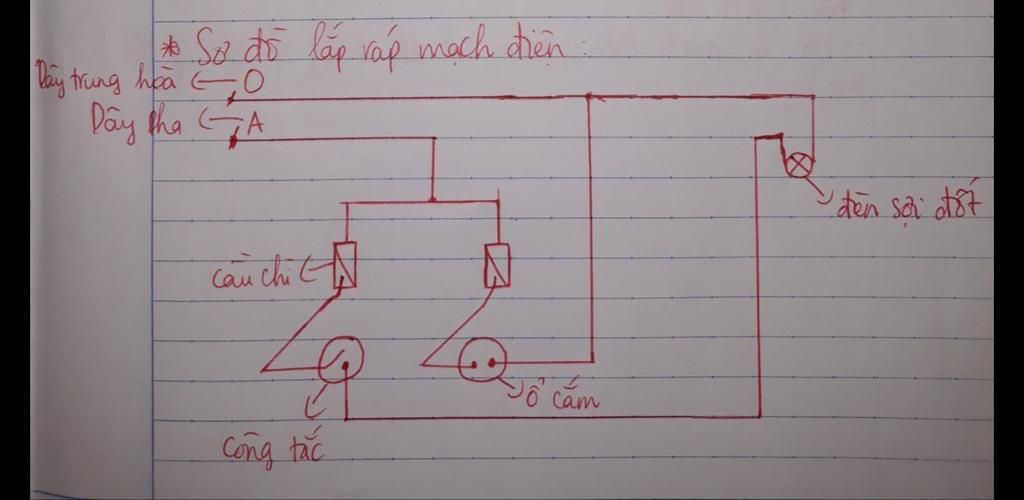 * Sơ đồ lắp ráp mạch điện :
Dây trung hoà O
Dây pha A
đèn sợi đốt
cầu chì
ổ cắm
công tắc